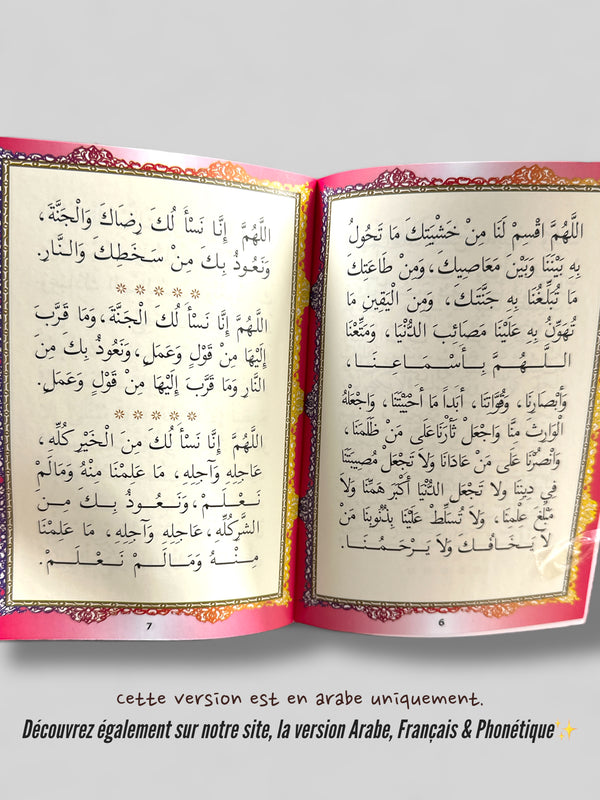 اللَّهُمَّ اقْسِمْ لَنَا مِنْ خَشْيَتِكَ مَا تَحُولُ
بِهِ بَيْنَنَا وَبَيْنَ مَعَاصِيكَ، وَمِنْ طَاعَتِكَ
مَا تُبَلِّغُنَا بِهِ جَنَّتَكَ، وَمِنَ الْيَقِينِ مَا
تُهَوِّنُ بِهِ عَلَيْنَا مَصَائِبَ الدُّنْيَا، وَمَتِّعْنَا
اللَّهُمَّ بِأَسْمَاعِنَا،
وَأَبْصَارِنَا، وَقُوَّاتِنَا، أَبَداً مَا أَحْيَيْتَنَا، وَاجْعَلْهُ
الْوَارِثَ مِنَّا وَاجْعَلْ ثَأْرَنَا عَلَى مَنْ ظَلَمَنَا،
وَانْصُرْنَا عَلَى مَنْ عَادَانَا وَلاَ تَجْعَلْ مُصِيبَتَنَا
فِي دِينِنَا وَلاَ تَجْعَلِ الدُّنْيَا أَكْبَرَ هَمِّنَا وَلاَ
مَبْلَغَ عِلْمِنَا، وَلاَ تُسَلِّطْ عَلَيْنَا بِذُنُوبِنَا مَنْ
لاَ يَخَافُكَ وَلاَ يَرْحَمُنَا.
6
اللَّهُمَّ إِنَّا نَسْأَلُكَ رِضَاكَ وَالْجَنَّةَ،
وَنَعُوذُ بِكَ مِنْ سَخَطِكَ وَالنَّارِ.
اللَّهُمَّ إِنَّا نَسْأَلُكَ الْجَنَّةَ، وَمَا قَرَّبَ
إِلَيْهَا مِنْ قَوْلٍ وَعَمَلٍ، وَنَعُوذُ بِكَ مِنَ
النَّارِ وَمَا قَرَّبَ إِلَيْهَا مِنْ قَوْلٍ وَعَمَلٍ.
اللَّهُمَّ إِنَّا نَسْأَلُكَ مِنَ الْخَيْرِ كُلِّهِ،
عَاجِلِهِ وَآجِلِهِ، مَا عَلِمْنَا مِنْهُ وَمَالَمْ
نَعْلَمْ، وَنَعُوذُ بِكَ مِنَ
الشَّرِّ كُلِّهِ، عَاجِلِهِ وَآجِلِهِ، مَا عَلِمْنَا
مِنْهُ وَمَالَمْ نَعْلَمْ.
7
cette version est en arabe uniquement.
Découvrez également sur notre site, la version Arabe, Français & Phonétique✨